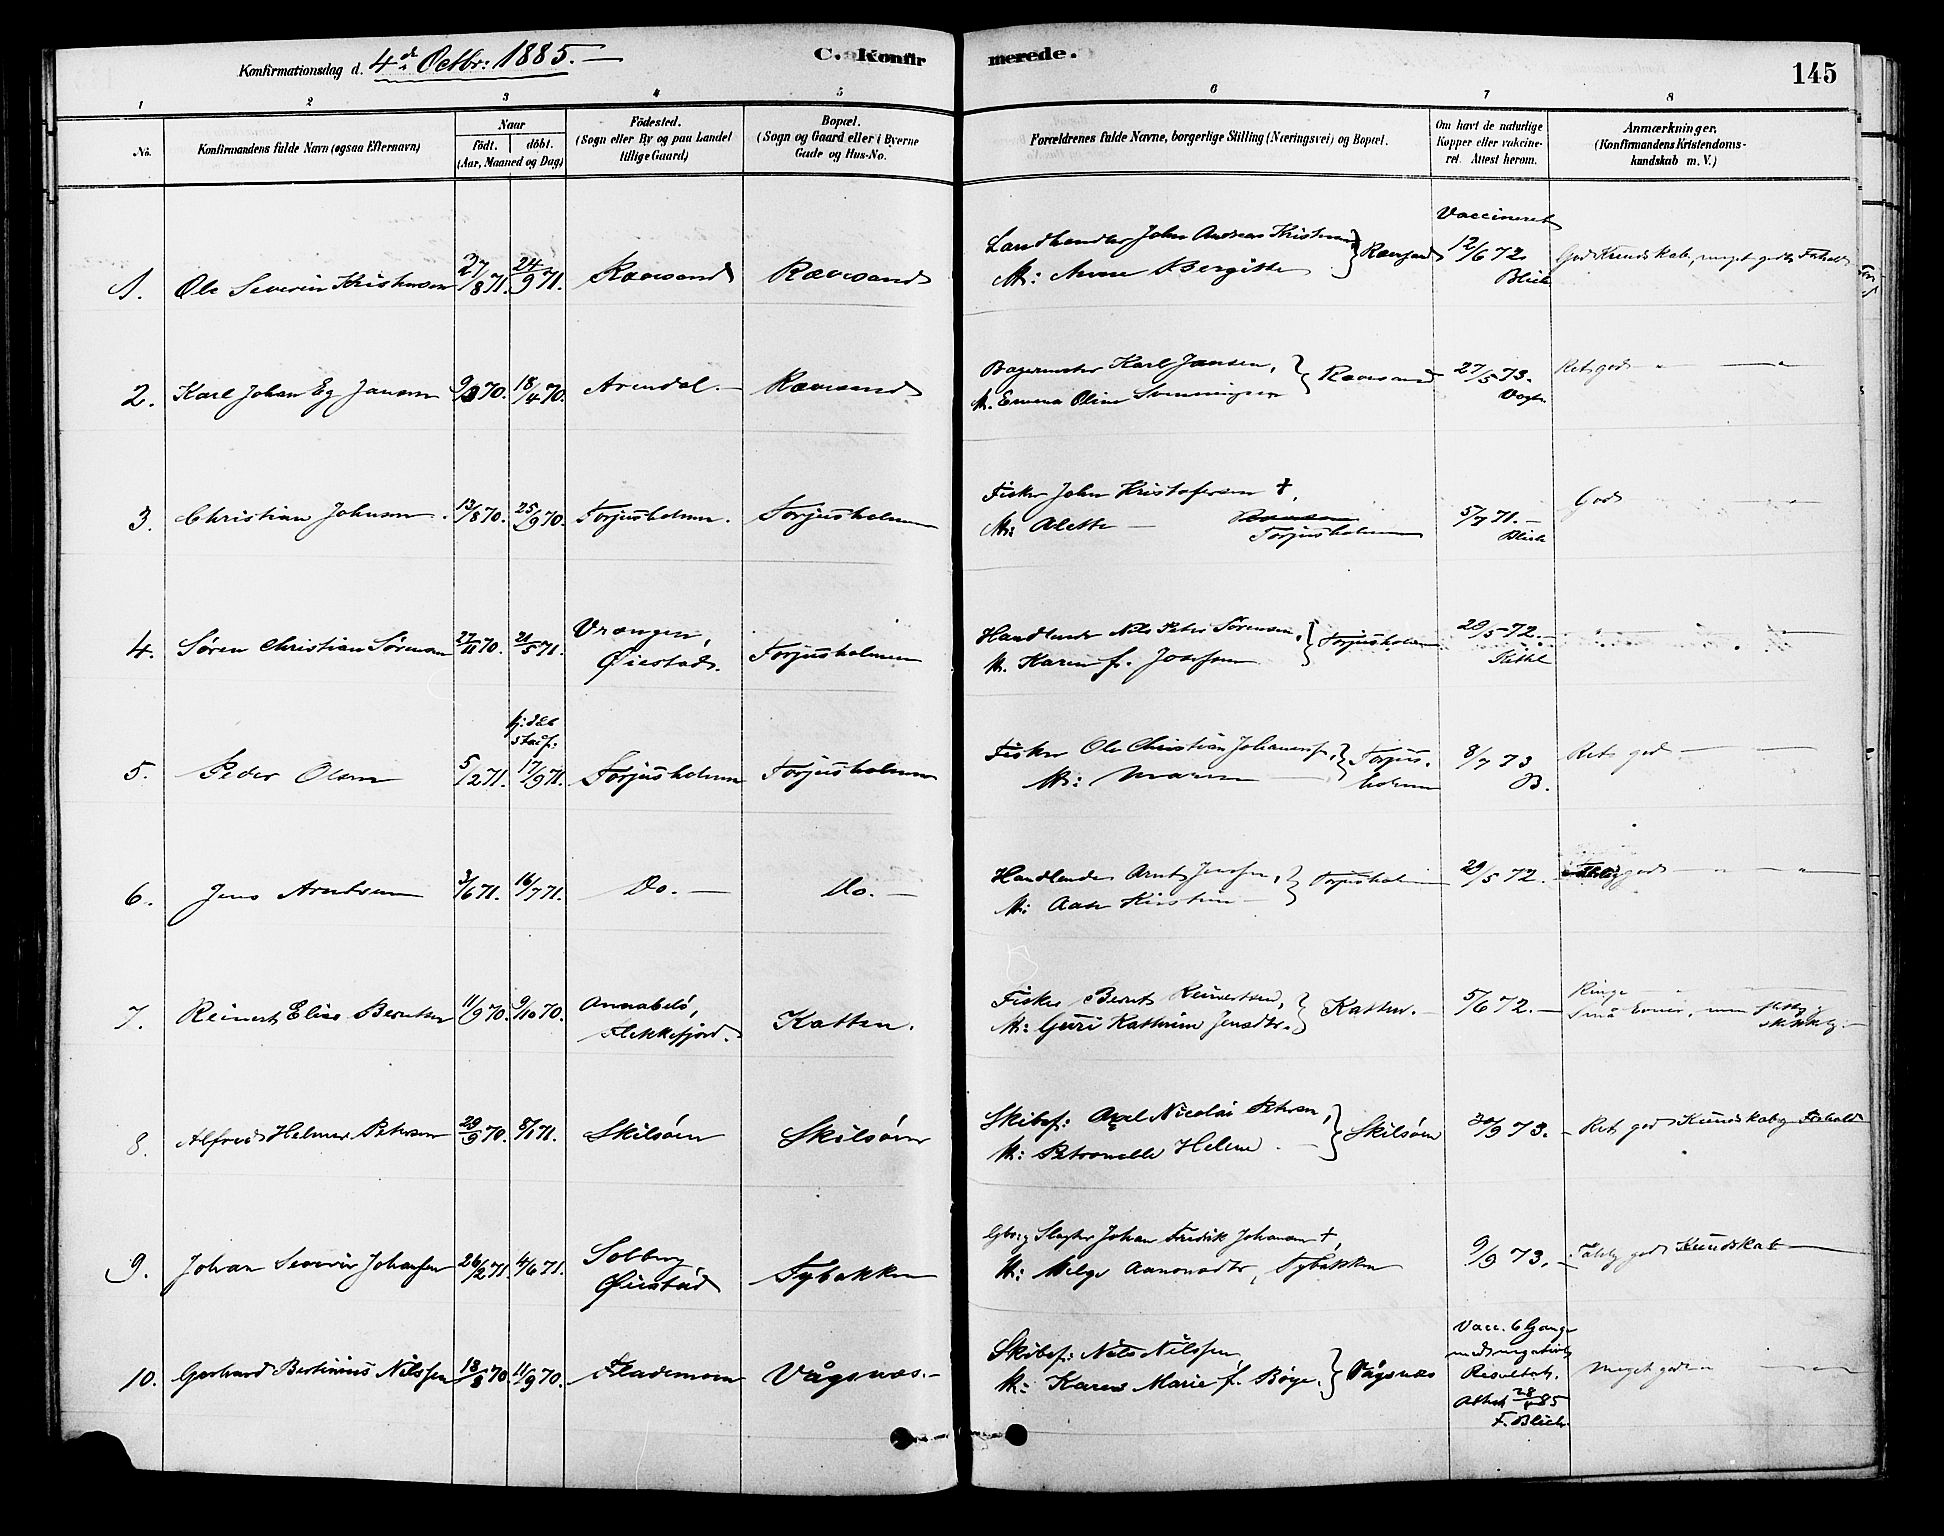 Konfirmationsdag d. 4de Octbr: 1885. —
C. Konfirmerede.
145
1 2 3 4 5 6 7 8
No. Konfirmandens fulde Navn (ogsaa Efternavn) Naar födt. döbt. (Aar, Maaned og Dag) Födested. (Sogn eller By og paa Landet tillige Gaard) Bopæl. (Sogn og Gaard eller i Byerne Gade og Hus-No. Forældrenes fulde Navne, borgerlige Stilling (Næringsvei) og Bopæl. Om havt de naturlige Kopper eller vakcineret. Attest herom. Anmærkninger. (Konfirmandens Kristendomskundskab m. V.)
1. Ole Severin Kristensen 27/8 71. 24/9 71. Rævesand Rævesand Landhandler John Andreas Kristensen M: Anne Bergitte } Rævesand Vaccineret 12/6 72 Blich God Kundskab, meget godt Forhold
2. Karl Johan Eg Jansen 9/3 70. 18/4 70. Arendal. — Rævesand Bagermester Karl Jansen, M. Emma Oline } Rævesand 27/5 73. Vogt. Ret god — " — "
3. Christian Johnsen. 13/8 70. 25/9 70. Torjusholmen. Torjusholmen Fisker John Kristofersen †, M: Alette — Torjusholmen 5/7 71. — Blich God — "
4. Søren Christian Sørensen 27/11 70. 21/5 71. Vrængen, Øiestad. Torjusholmen Handlende Nils Peter Sørensen, M. Karen f. Josefsen } Torjusholmen 20/5 72. — " — " — "
5. Peder Olsen 5/2 71. hj: døbt stadf: 17/9 71. Torjusholmen Torjusholmen Fisker Ole Christian Johannesen, M: Maren } Torjusholmen 8/7 73 B. Ret god — —
6. Jens Arntsen 3/6 71. 16/7 71. Do. — Do. — Handlende Arnt Jensen, M: Aase Kirstine — } Torjusholmen 20/5 72. god — " — "
7. Reinert Elias Berntsen 11/9 70. 9/10 70. Annabelø, Flekkefjord. Katten. Fisker Bernt Reinertsen, M: Guri Kathrine Jensdtr. } Katten. — 5/6 72. — Ringe — " Små Evner, men flittig skikkelig. —
8. Alfred Helmer Petersen 29/9 70. 8/1 71. Skilsøen Skilsøen Skibsf: Axel Nicolai Petersen, M: Petronelle Helene — } Skilsøen 30/9 73. — Ret god Kundskab og Forhold
9. Johan Severin Johansen 26/2 71. 4/6 71. Solberg Øiestad Tybakken Gbr. og Slagter Johan Fredrik Johansen †, M: Helge Aanonsdtr, Tybakken 9/9 73. — Tålelig god Kundskab —
10. Gerhard Bertinius Nilssen 13/8 70. 11/9 70. Flademoen Vågsnæs. — Skibsf: Nils Nilssen M: Karen Marie f. Bøye. } Vågsnæs Vacc. 6 Gange med negativt Resultat. Attest 28/8 85 F. Blich Meget god — " — "